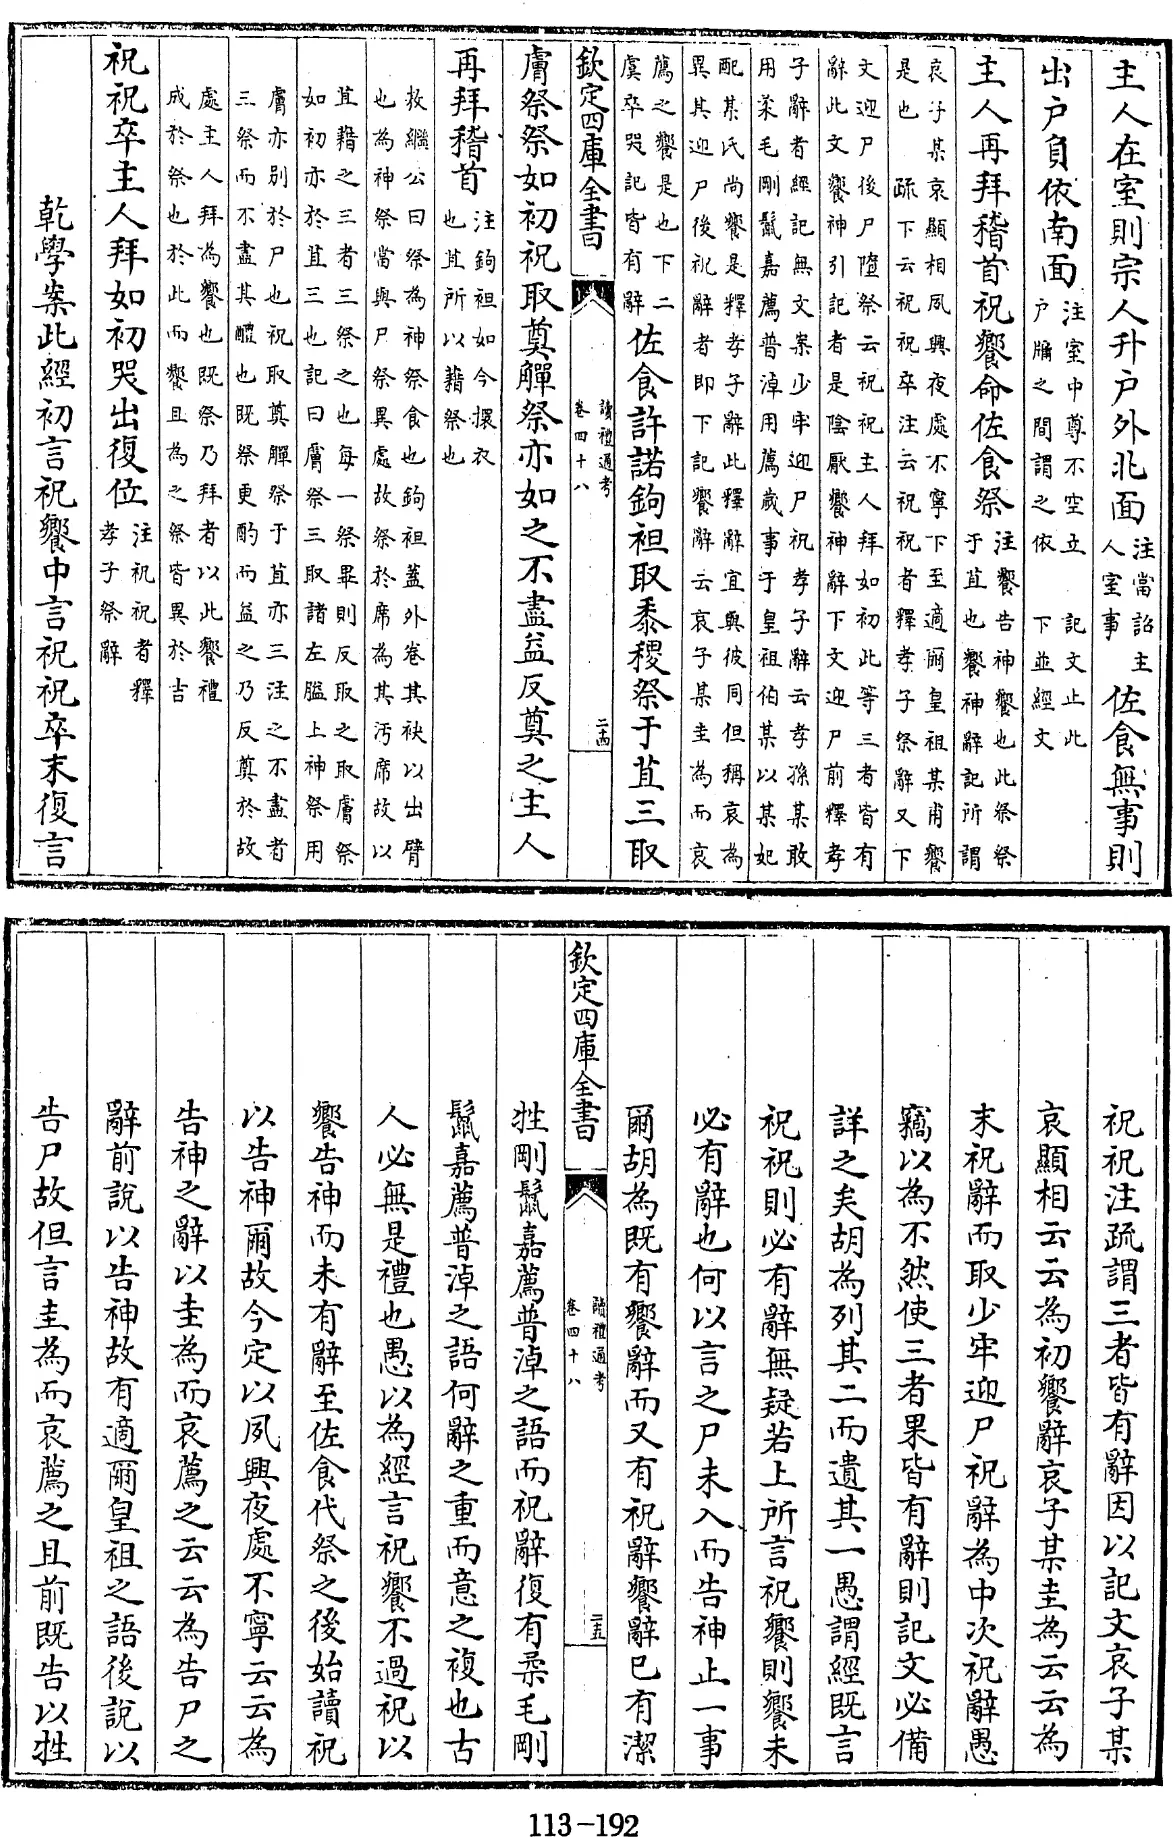 主人在室則宗人升戶外北面注當詔主人室事佐食無事則
出戶負依南面注室中尊不空立戶牖之間謂之依 記文止此下並經文
主人再拜稽首祝饗命佐食祭注饗告神饗也此祭祭于苴也饗神辭記所謂
哀子某哀顯相夙興夜處不寧下至適爾皇祖某甫饗
是也 疏下云祝祝卒注云祝祝者釋孝子祭辭又下
文迎尸後尸墮祭云祝祝主人拜如初此等三者皆有
辭此文饗神引記者是陰厭饗神辭下文迎尸前釋孝
子辭者經記無文案少牢迎尸祝孝子辭云孝孫某敢
用柔毛剛鬣嘉薦普淖用薦歲事于皇祖伯某以某妃
配某氏尚饗是釋孝子辭此釋辭宜與彼同但稱哀為
異其迎尸後祝辭者即下記饗辭云哀子某圭為而哀
薦之饗是也下二虞卒哭記皆有辭佐食許諾鉤袒取黍稷祭于苴三取
欽定四庫全書
讀禮通考
卷四十八
二十四
膚祭祭如初祝取奠觶祭亦如之不盡益反奠之主人
再拜稽首注鉤袒如今擐衣也苴所以藉祭也
敖繼公曰祭為神祭食也鉤袒蓋外卷其袂以出臂
也為神祭當與尸祭異處故祭於席為其汚席故以
苴藉之三者三祭之也每一祭畢則反取之取膚祭
如初亦於苴三也記曰膚祭三取諸左膉上神祭用
膚亦別於尸也祝取奠觶祭于苴亦三注之不盡者
三祭而不盡其醴也既祭更酌而益之乃反奠於故
處主人拜為饗也既祭乃拜者以此饗禮
成於祭也於此而饗且為之祭皆異於吉
祝祝卒主人拜如初哭出復位注祝祝者釋孝子祭辭
乾學案此經初言祝饗中言祝祝卒末復言
祝祝注疏謂三者皆有辭因以記文哀子某
哀顯相云云為初饗辭哀子某圭為云云為
末祝辭而取少牢迎尸祝辭為中次祝辭愚
竊以為不然使三者果皆有辭則記文必備
詳之矣胡為列其二而遺其一愚謂經既言
祝祝則必有辭無疑若上所言祝饗則饗未
必有辭也何以言之尸未入而告神止一事
爾胡為既有饗辭而又有祝辭饗辭已有潔
欽定四庫全書
讀禮通考
卷四十八
二十五
牲剛鬣嘉薦普淖之語而祝辭復有柔毛剛
鬣嘉薦普淖之語何辭之重而意之複也古
人必無是禮也愚以為經言祝饗不過祝以
饗告神而未有辭至佐食代祭之後始讀祝
以告神爾故今定以夙興夜處不寧云云為
告神之辭以圭為而哀薦之云云為告尸之
辭前說以告神故有適爾皇祖之語後說以
告尸故但言圭為而哀薦之且前既告以牲
113-192